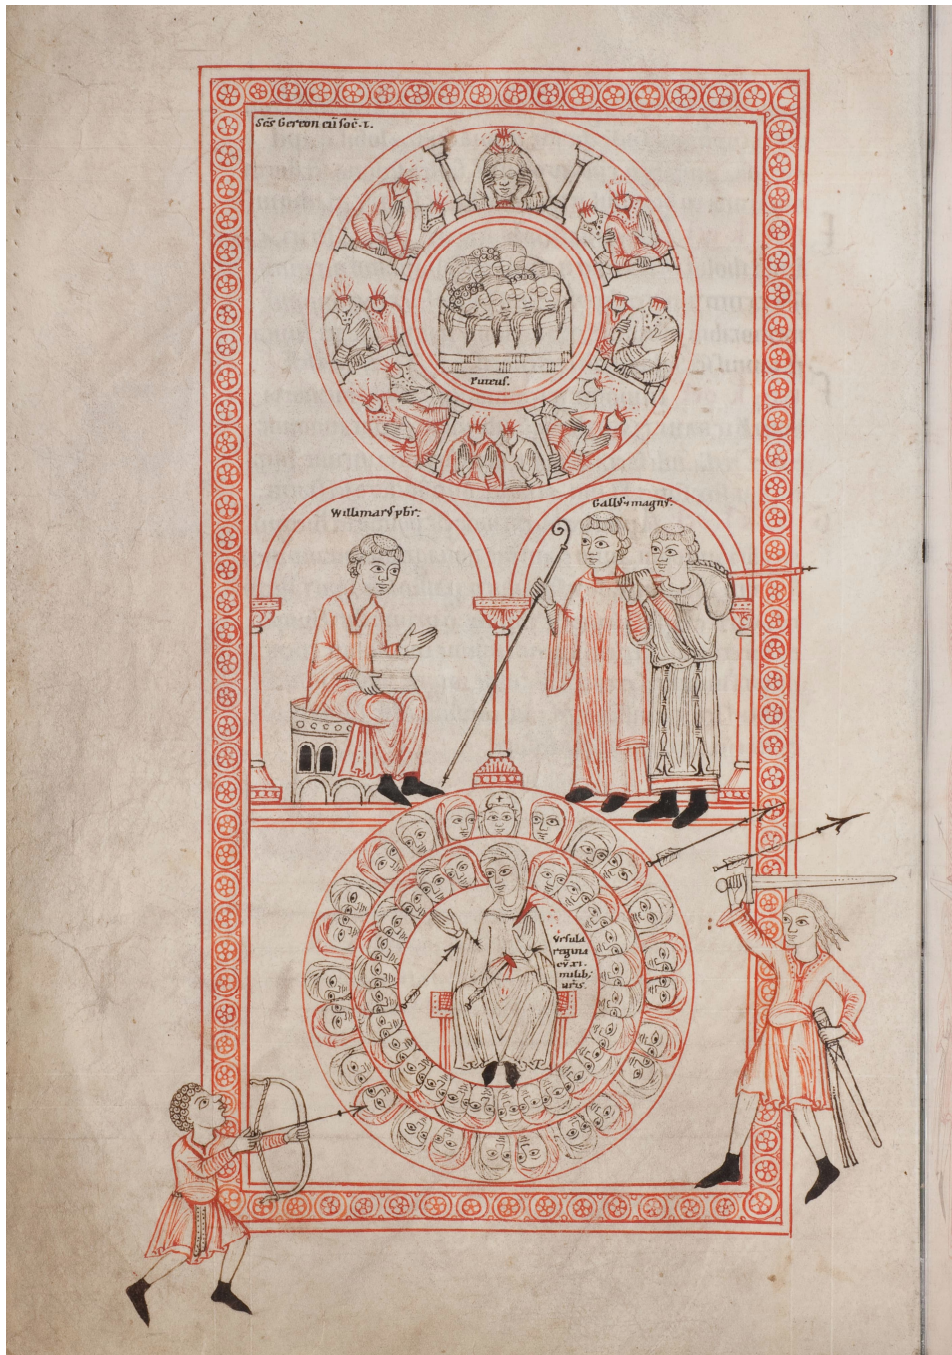 Scs Gereon cū soc. i.
Puteus.
Willimarꝰ pbr.
Gallꝰ ⁊ magnꝰ.
Vrsula
regina
cū xi.
milib;
uirg.